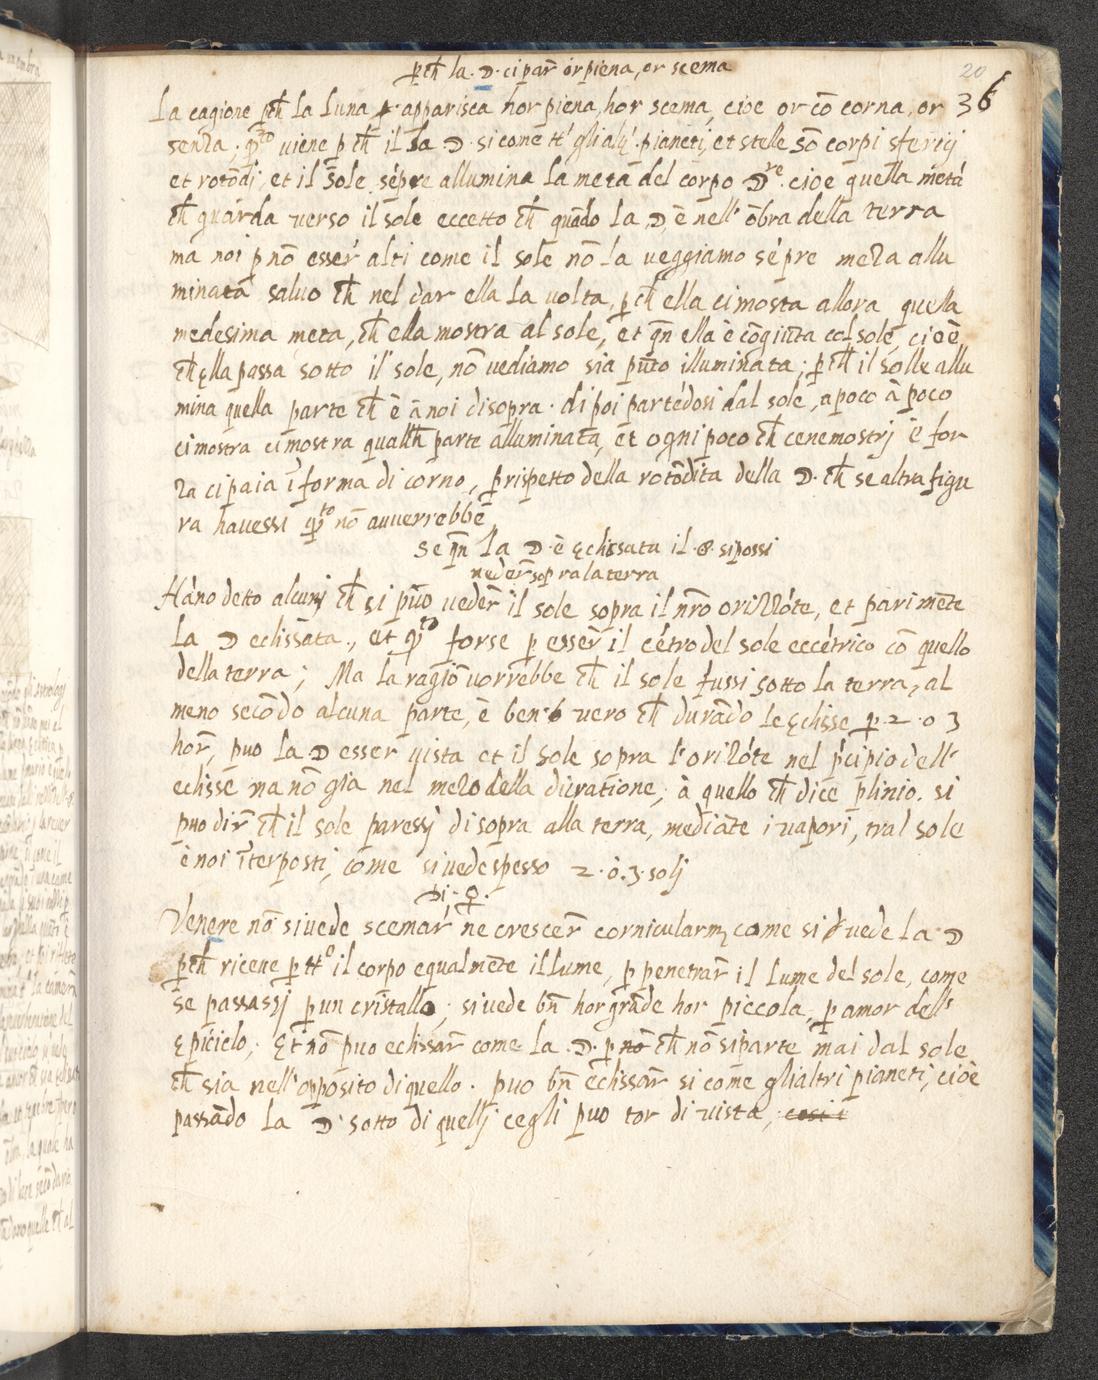 20
36
p̱ch̄ la ☽ ci par̄ or piena, or scema
La cagione p̱ch̄ la Luna apparisca hor piena, hor scema, cioe or cō corna, or
senza; q̄sto viene p̱ ch̄ il la ☽ si come tt' gli altr' pianeti, et stelle sō corpi sferiçi
et rotōdi, et il sole sēpre allumina la metà del corpo ☽re. cioe quella metà
ch̄ guarda verso il sole eccetto ch̄ quādo la ☽ è nell' ōbra della terra
ma noi p̱ nō esser' alti come il sole nō la veggiamo sēpre meza allu
minata salvo ch̄ nel dar ella la volta, p̱ch̄ ella ci mosta allora quella
medesima meta, ch̄ ella mostra al sole, et qn̄ ella è cōgiūta col sole, cioè
ch̄ ella passa sotto il sole, nō vediamo sia pūto illuminata; p̱ ch̄ il solle allu
mina quella parte ch̄ è à noi disopra. di poi partēdosi dal sole, a poco à poco
ci mostra ci mostra qualch̄ parte alluminata, et ogni poco ch̄ cene mostrj è for
za ci paia ī forma di corno, p̱ rispetto della rotōdita della ☽ ch̄ se altra figu
ra havessi q̄sto nō avverrebbe
se qn̄ la ☽ è eclissata il ☉ si possi
veder̄ sop̱ra la terra
Hāno detto alcunj ch̄ si può veder̄ il sole sopra il nr̄o orizzōte, et parimēte
la ☽ eclissata, et q̄sto forse p̱ esser̄ il cētro del sole eccētrico cō quello
della terra; Ma la ragiō vorrebbe ch̄ il sole fussi sotto la terra, al
meno secōdo alcuna parte, è ben vero ch̄ durādo le eclisse p̱ 2 o 3
hor̄, puo la ☽ esser vista et il sole sopra l'orizōte nel p̄cipio dell'
eclisse ma nō gia nel mezo della duratione; à quello ch̄ dice plinio. si
puo dir̄ ch̄ il sole paressj disopra alla terra, mediāte i vapori, tral sole
è noi īterposti, come si vede spesso 2. o. 3. solj
Di ♀.
Venere nō si vede scemar' ne crescer̄ cornicularm̄ come si vede la ☽
p̱ch̄ riceve p̱ tt° il corpo equalmēte il lume, p̱ penetrar̄ il lume del sole, come
se passassj p̱ un cristallo; si vede bn̄ hor grāde hor piccola, p̱ amor dell'
epiciclo; Et nō puo eclissar̄ come la ☽ p̱ no ch̄ nō si parte mai dal sole
ch̄ sia nell' opposito di quello. puo bn̄ eclissar̄ si come gli altri pianeti, cioè
passādo la ☽ sotto di quellj cegli puo tor di vista; cosi è